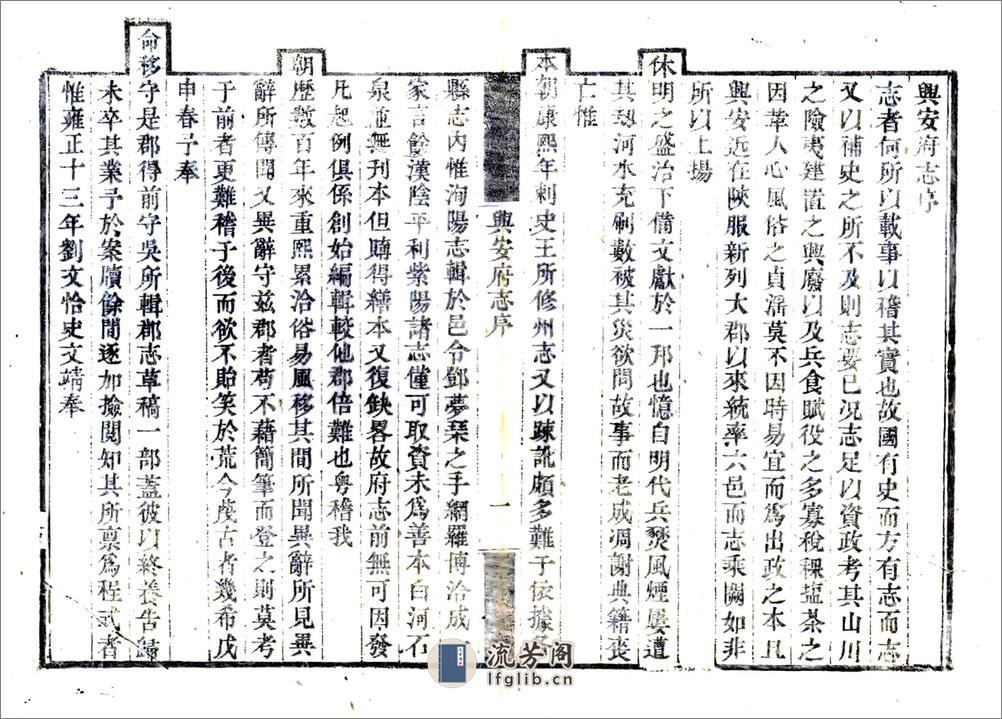 興安府志序
志者何所以載事以稽其實也故國有史而方有志而志
又以補史之所不及則志要已況志足以資政考其山川
之險夷建置之興廢以及兵食賦役之多寡稅課鹽茶之
因革人心風俗之貞淫莫不因時易宜而為出政之本且
興安近在陝服新列大郡以來統率六邑而志乘闕如非
所以上揚
休明之盛治下備文獻於一邦也憶自明代兵燹風煙屢遭
其刼河水充刷數被其災欲問故事而老成凋謝典籍喪
亡惟
本朝康熙年刺史王所修州志又以踈訛頗多難于依據各
興安府志序
一
縣志內惟洵陽志輯於邑令鄧夢琴之手網羅博洽成一
家言餘漢陰平利紫陽諸志僅可取資未為善本白河石
泉並無刊本但購得繕本又復缺畧故府志前無可因發
凡起例俱係創始編輯較他郡倍難也粤稽我
朝歷數百年來重熙累洽俗易風移其間所聞異辭所見異
辭所傳聞又異辭守茲郡者苟不藉簡筆而登之則莫考
于前者更難稽于後而欲不貽笑於荒今蔑古者幾希戊
申春予奉
命移守是郡得前守吳所輯郡志草稿一部蓋彼以終養告歸
未卒其業予於案牘餘閒逐加撿閱知其所禀為程式者
惟雍正十三年劉文恪史文靖奉
流芳阁
lfglib.cn